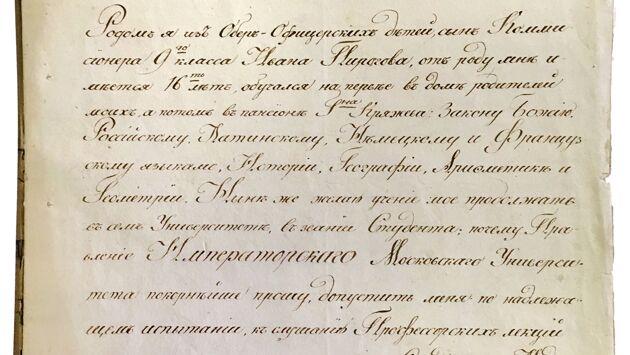 Родомъ я изъ Оберъ-Офицерскихъ дѣтей, сынъ Комми
сіонера 9го класса Ивана Пирогова, отъ роду мнѣ и-
мѣется 16ть лѣтъ, обучался на первые въ домѣ родителей
моихъ, а потомъ въ пансіонѣ Гна Кряжева: Закону Божію,
Россійскому, Латинскому, Нѣмецкому и Француз
скому языкамъ, Исторіи, Географіи, Ариѳметикѣ и
Геометріи. Нынѣ же желаю ученіе мое продолжать
въ семъ Университетѣ, въ званіи Студента; почему Пра-
вленіе Императорскаго Московскаго Универси-
тета покорнѣйше прошу, допустить меня по надлежа-
щемъ испытаніи, къ слушанію Профессорскихъ лекцій